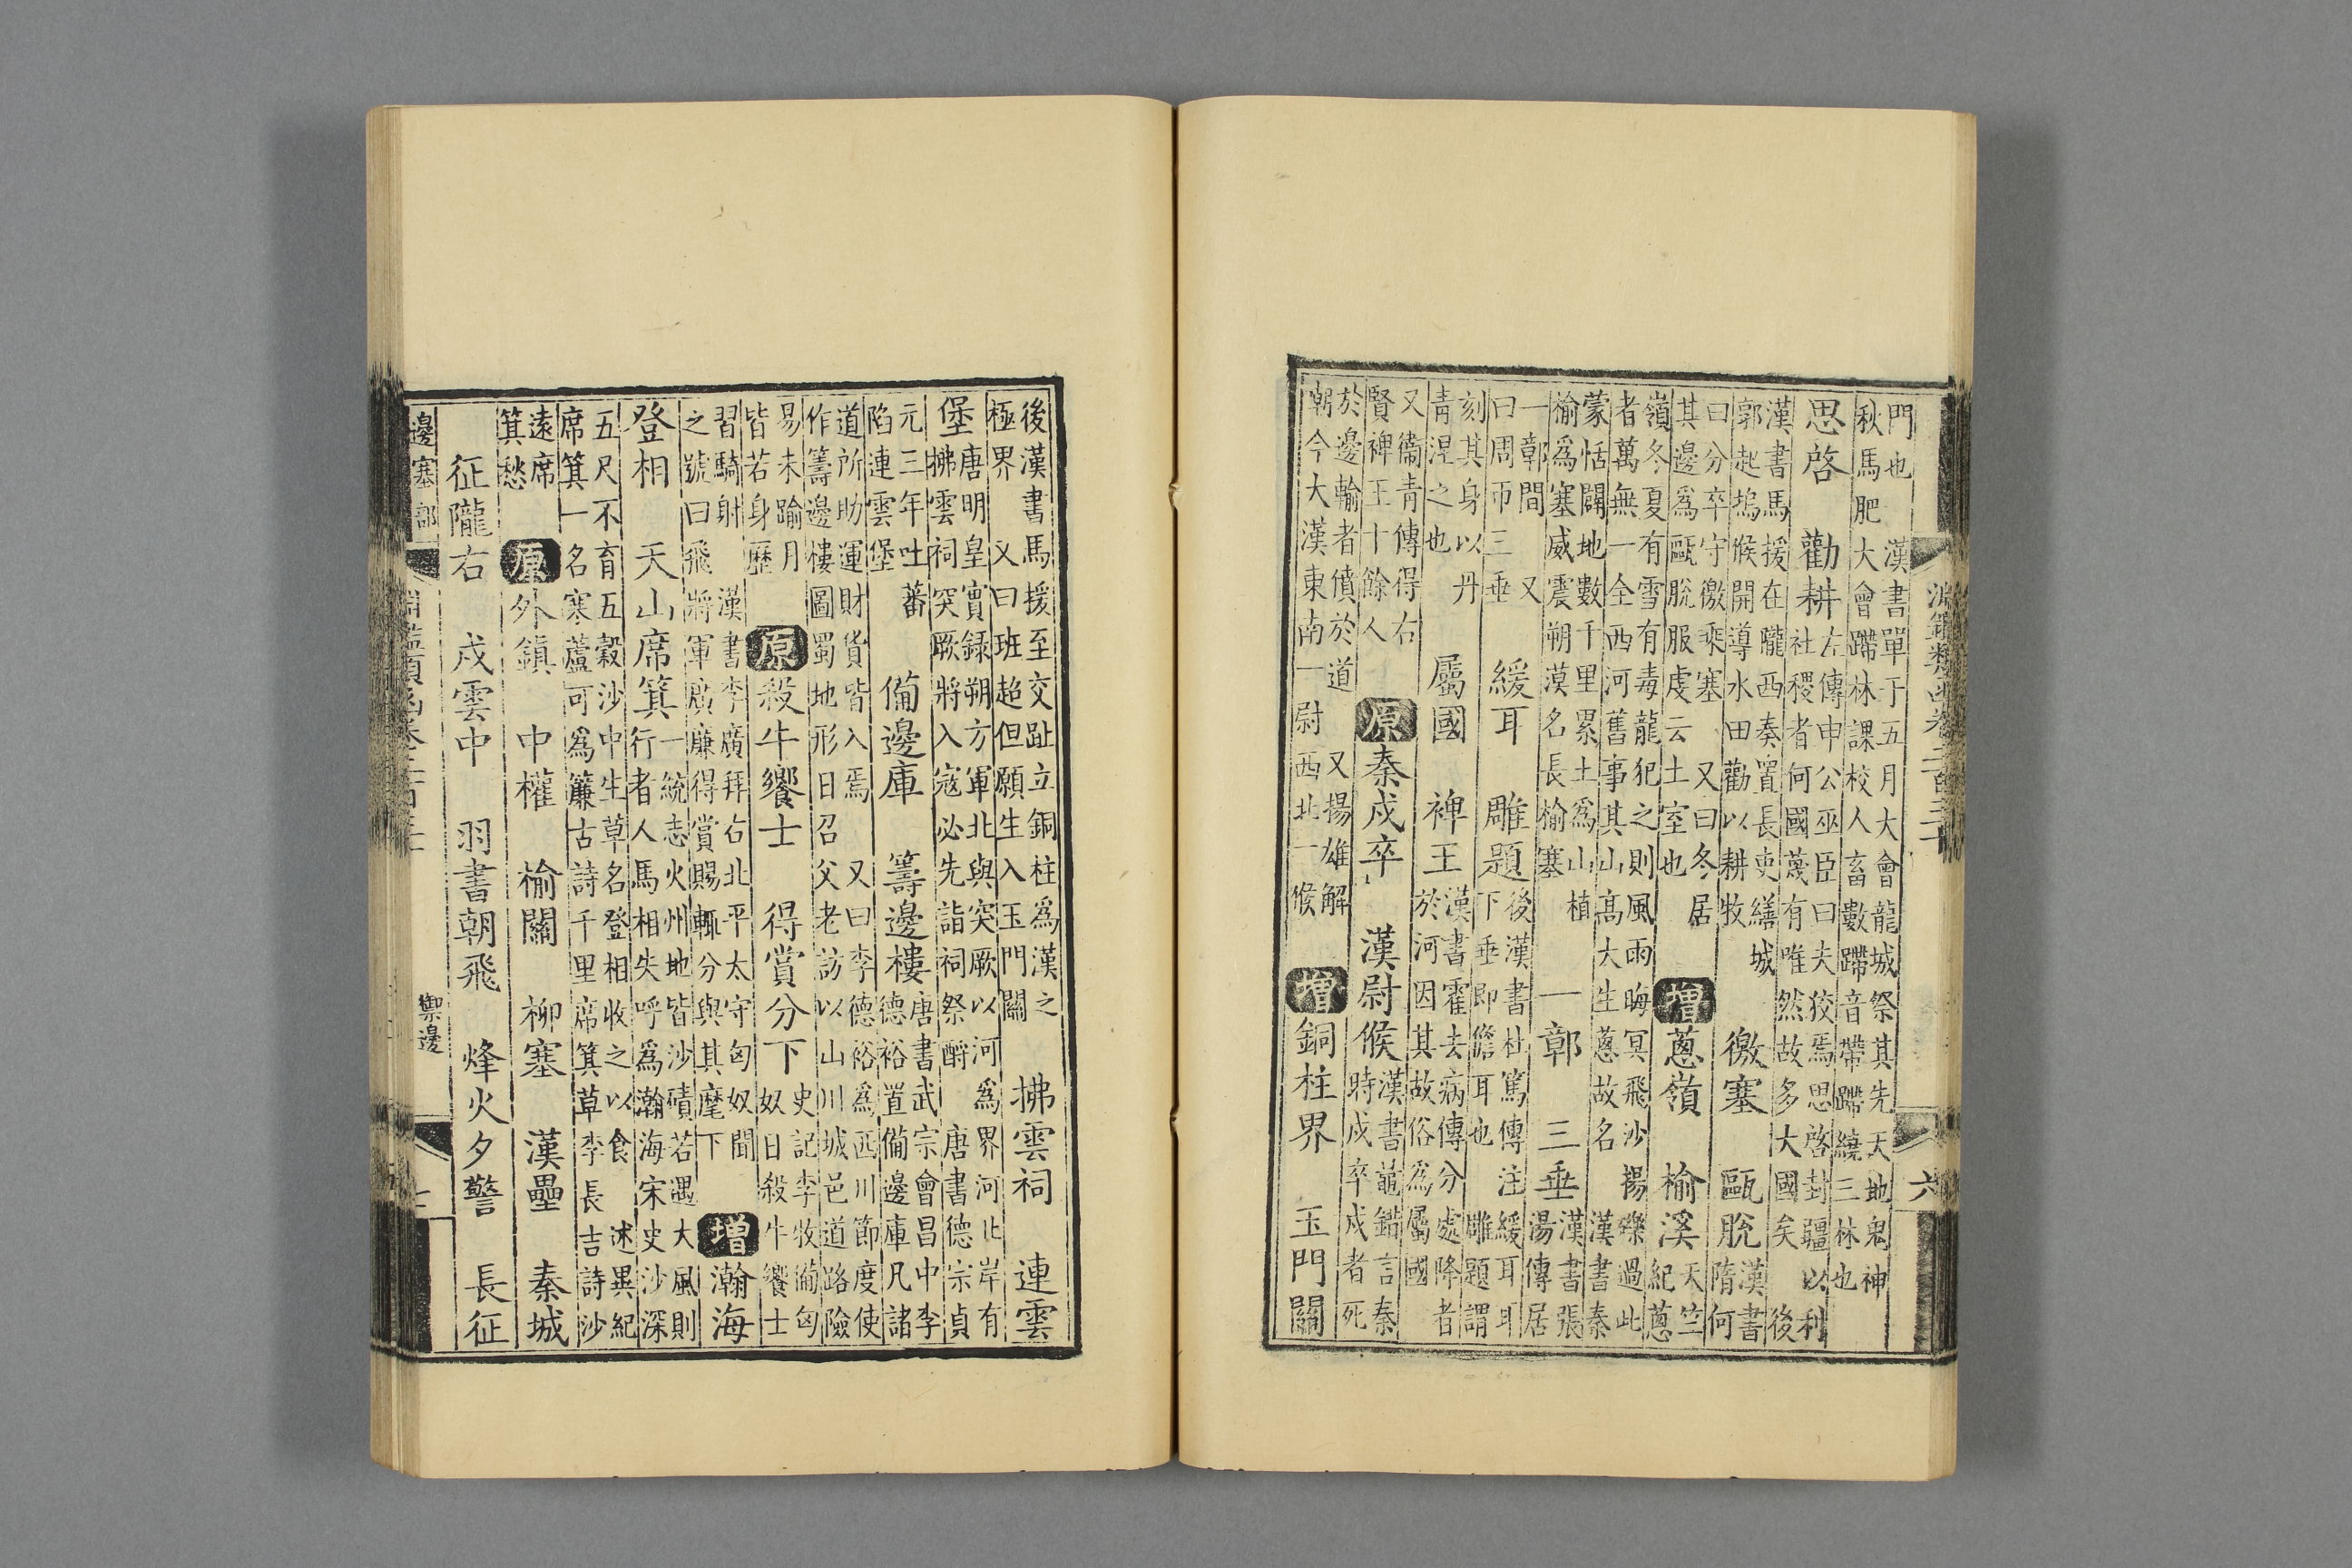 門也　漢書單于五月大會龍城祭其先天地鬼神
秋馬肥大會蹛林課校人畜數蹛音帶蹛繞三林也
思啓　勸耕
左傳申公巫臣曰夫狡焉思啓封疆以利
社稷者何國蔑有唯然故多大國矣　後
漢書馬援在隴西奏置長吏繕城
郭起塢候開導水田勸以耕牧
徼塞　甌脫
漢書
隋何
曰分卒守徼乘塞　又曰冬居
其邊爲甌脫服虔云土室也
增　蔥嶺　榆溪
天竺
紀蔥
嶺冬夏有雪有毒龍犯之則風雨晦冥飛沙揚礫過此
者萬無一全西河舊事其山高大生蔥故名　漢書秦
蒙恬闢地數千里累土爲山植
榆爲塞威震朔漠名長榆塞
一鄣　三垂
漢書張
湯傳居
一鄣間　又
曰周帀三垂
緩耳　雕題
後漢書杜篤傳注緩耳耳
下垂即儋耳也　雕題謂
刻其身以丹
青涅之也
屬國　裨王
漢書霍去病傳分處降者
於河因其故俗爲屬國
又衞青傳得右
賢裨王十餘人
原　秦戍卒　漢尉候
漢書鼂錯言秦
時戍卒戍者死
於邊輸者僨於道　又揚雄解
朝今大漢東南一尉西北一候
增　銅柱界　玉門關
淵鑑類函卷二百三十
六
後漢書馬援至交趾立銅柱爲漢之
極界　又曰班超但願生入玉門關
拂雲祠　連雲
堡
唐明皇實録朔方軍北與突厥以河爲界河北岸有
拂雲祠突厥將入寇必先詣祠祭酹　唐書德宗貞
元三年吐蕃
陷連雲堡
備邊庫　籌邊樓
唐書武宗會昌中李
德裕置備邊庫凡諸
道所助運財貨皆入焉　又曰李德裕爲西川節度使
作籌邊樓圖蜀地形日召父老訪以山川城邑道路險
易未踰月
皆若身歷
原　殺牛饗士　得賞分下
史記李牧備匈
奴日殺牛饗士
習騎射　漢書李廣拜右北平太守匈奴聞
之號曰飛將軍廣廉得賞賜輒分與其麾下
增　瀚海
登相　天山席箕
一統志火州地皆沙磧若遇大風則
行者人馬相失呼爲瀚海宋史沙深
五尺不育五穀沙中生草名登相收之以食　述異紀
席箕一名塞蘆可爲簾古詩千里席箕草李長吉詩沙
遠席
箕愁
原　外鎮　中權　榆關　柳塞　漢壘　秦城
征隴右　戍雲中　羽書朝飛　烽火夕警　長征
邊塞部
禦邊
淵鑑類函卷二百三十